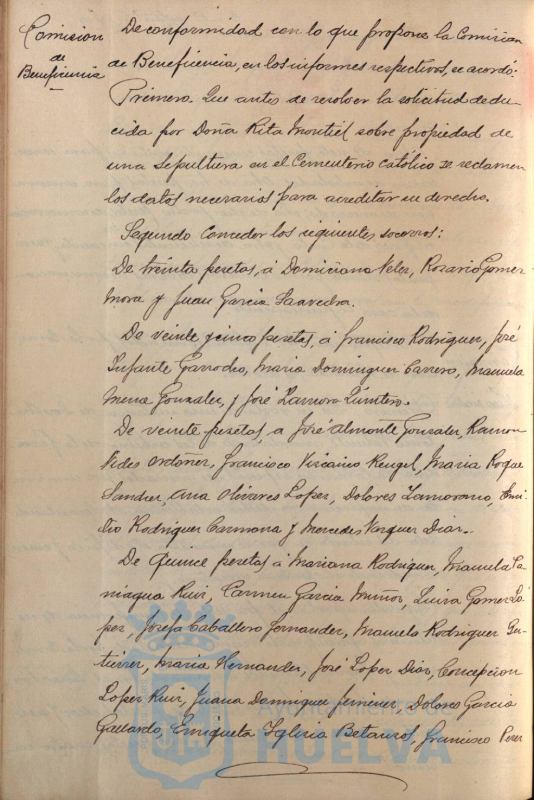 Comision
de
Beneficencia
De conformidad con lo que propone la Comision
de Beneficencia, en los informes respectivos, se acordó:
Primero. Que antes de resolver la solicitud dedu-
cida por Doña Rita Montiel sobre propiedad de
una sepultura en el Cementerio Católico se reclamen
los datos necesarios para acreditar su derecho.
Segundo Conceder los siguientes socorros:
De treinta pesetas, á Domiciana Velez, Rosario Gomez
Mora y Juan Garcia Saavedra.
De veinte y cinco pesetas, á Francisco Rodriguez, José
Infante Garrocho, Maria Dominguez Carrero, Manuela
Mena Gonzalez, y José Romero Quintero.
De veinte pesetas, a José Almonte Gonzalez, Ramon
Vides Ordoñez, Francisco Viscaino Rengel, Maria Roque
Sanchez, Ana Olivares Lopez, Dolores Zamorano, Emi-
lio Rodriguez Carmona y Mercedes Vazquez Diaz.
De Quince pesetas á Mariana Rodriguez, Manuela Pa-
niagua Ruiz, Carmen Garcia Muñoz, Luisa Gomez Ló-
pez, Josefa Caballero Fernandez, Manuela Rodriguez Gu-
tiérrez, Maria Hernandez, José Lopez Diaz, Concepcion
Lopez Ruiz, Juana Dominguez Jimenez, Dolores Garcia
Gallardo, Enriqueta Iglesia Betanzos, Francisco Perez
AYUNTAMIENTO DE
HUELVA